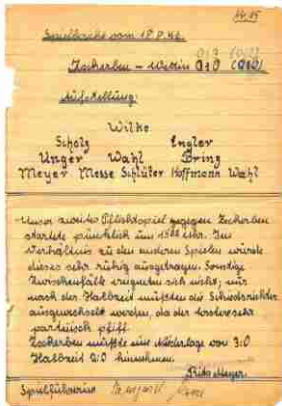 Spielberichte vom 18.8.46.
Zscherben – Wettin 0:0 (0:0)
Aufstellung:
Wilke
Scholz Engler
Unger Wahl Prinz
Meyer Messe Schlüter Hoffmann Wahl
Unser zweites Pflichtspiel gegen Zscherben
startete pünktlich um 1500 Uhr. Im
Verhältnis zu den anderen Spielen wurde
dieses sehr ruhig ausgetragen. Sonstige
Zwischenfälle ereigneten sich nicht; nur
nach der Halbzeit mußten die Schiedsrichter
ausgewechselt werden, da der
parteiisch pfiff.
Zscherben mußte eine Niederlage von 3:0
Halbzeit 2:0 hinnehmen.
Fritz Meyer.
Spielführer